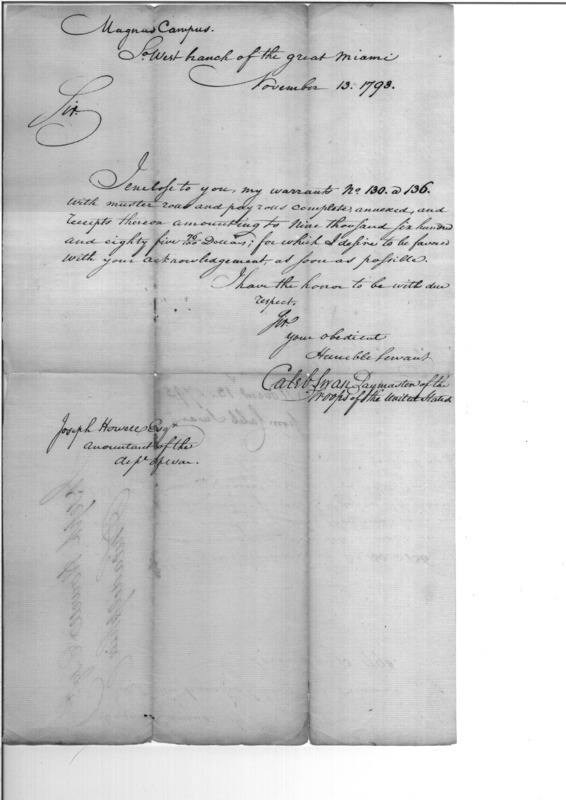 Magnus Campus.
So. West branch of the great Miami
November 13. 1793.
Sir.
I enclose to you, my warrants No. 130. a 136.
with muster rolls and pay rolls complete, annexed, and
receipts thereon amounting to Nine thousand six hundred
and eighty five Dollars; for which I desire to be favored
with your acknowledgement, as soon as possible.
I have the honor to be with due
respect,
Sir
your obedient
Humble Servant
Caleb Swan, Paymaster of the
troops of the United States
Joseph Howell Esqr.
accountant of the
dept. of war.